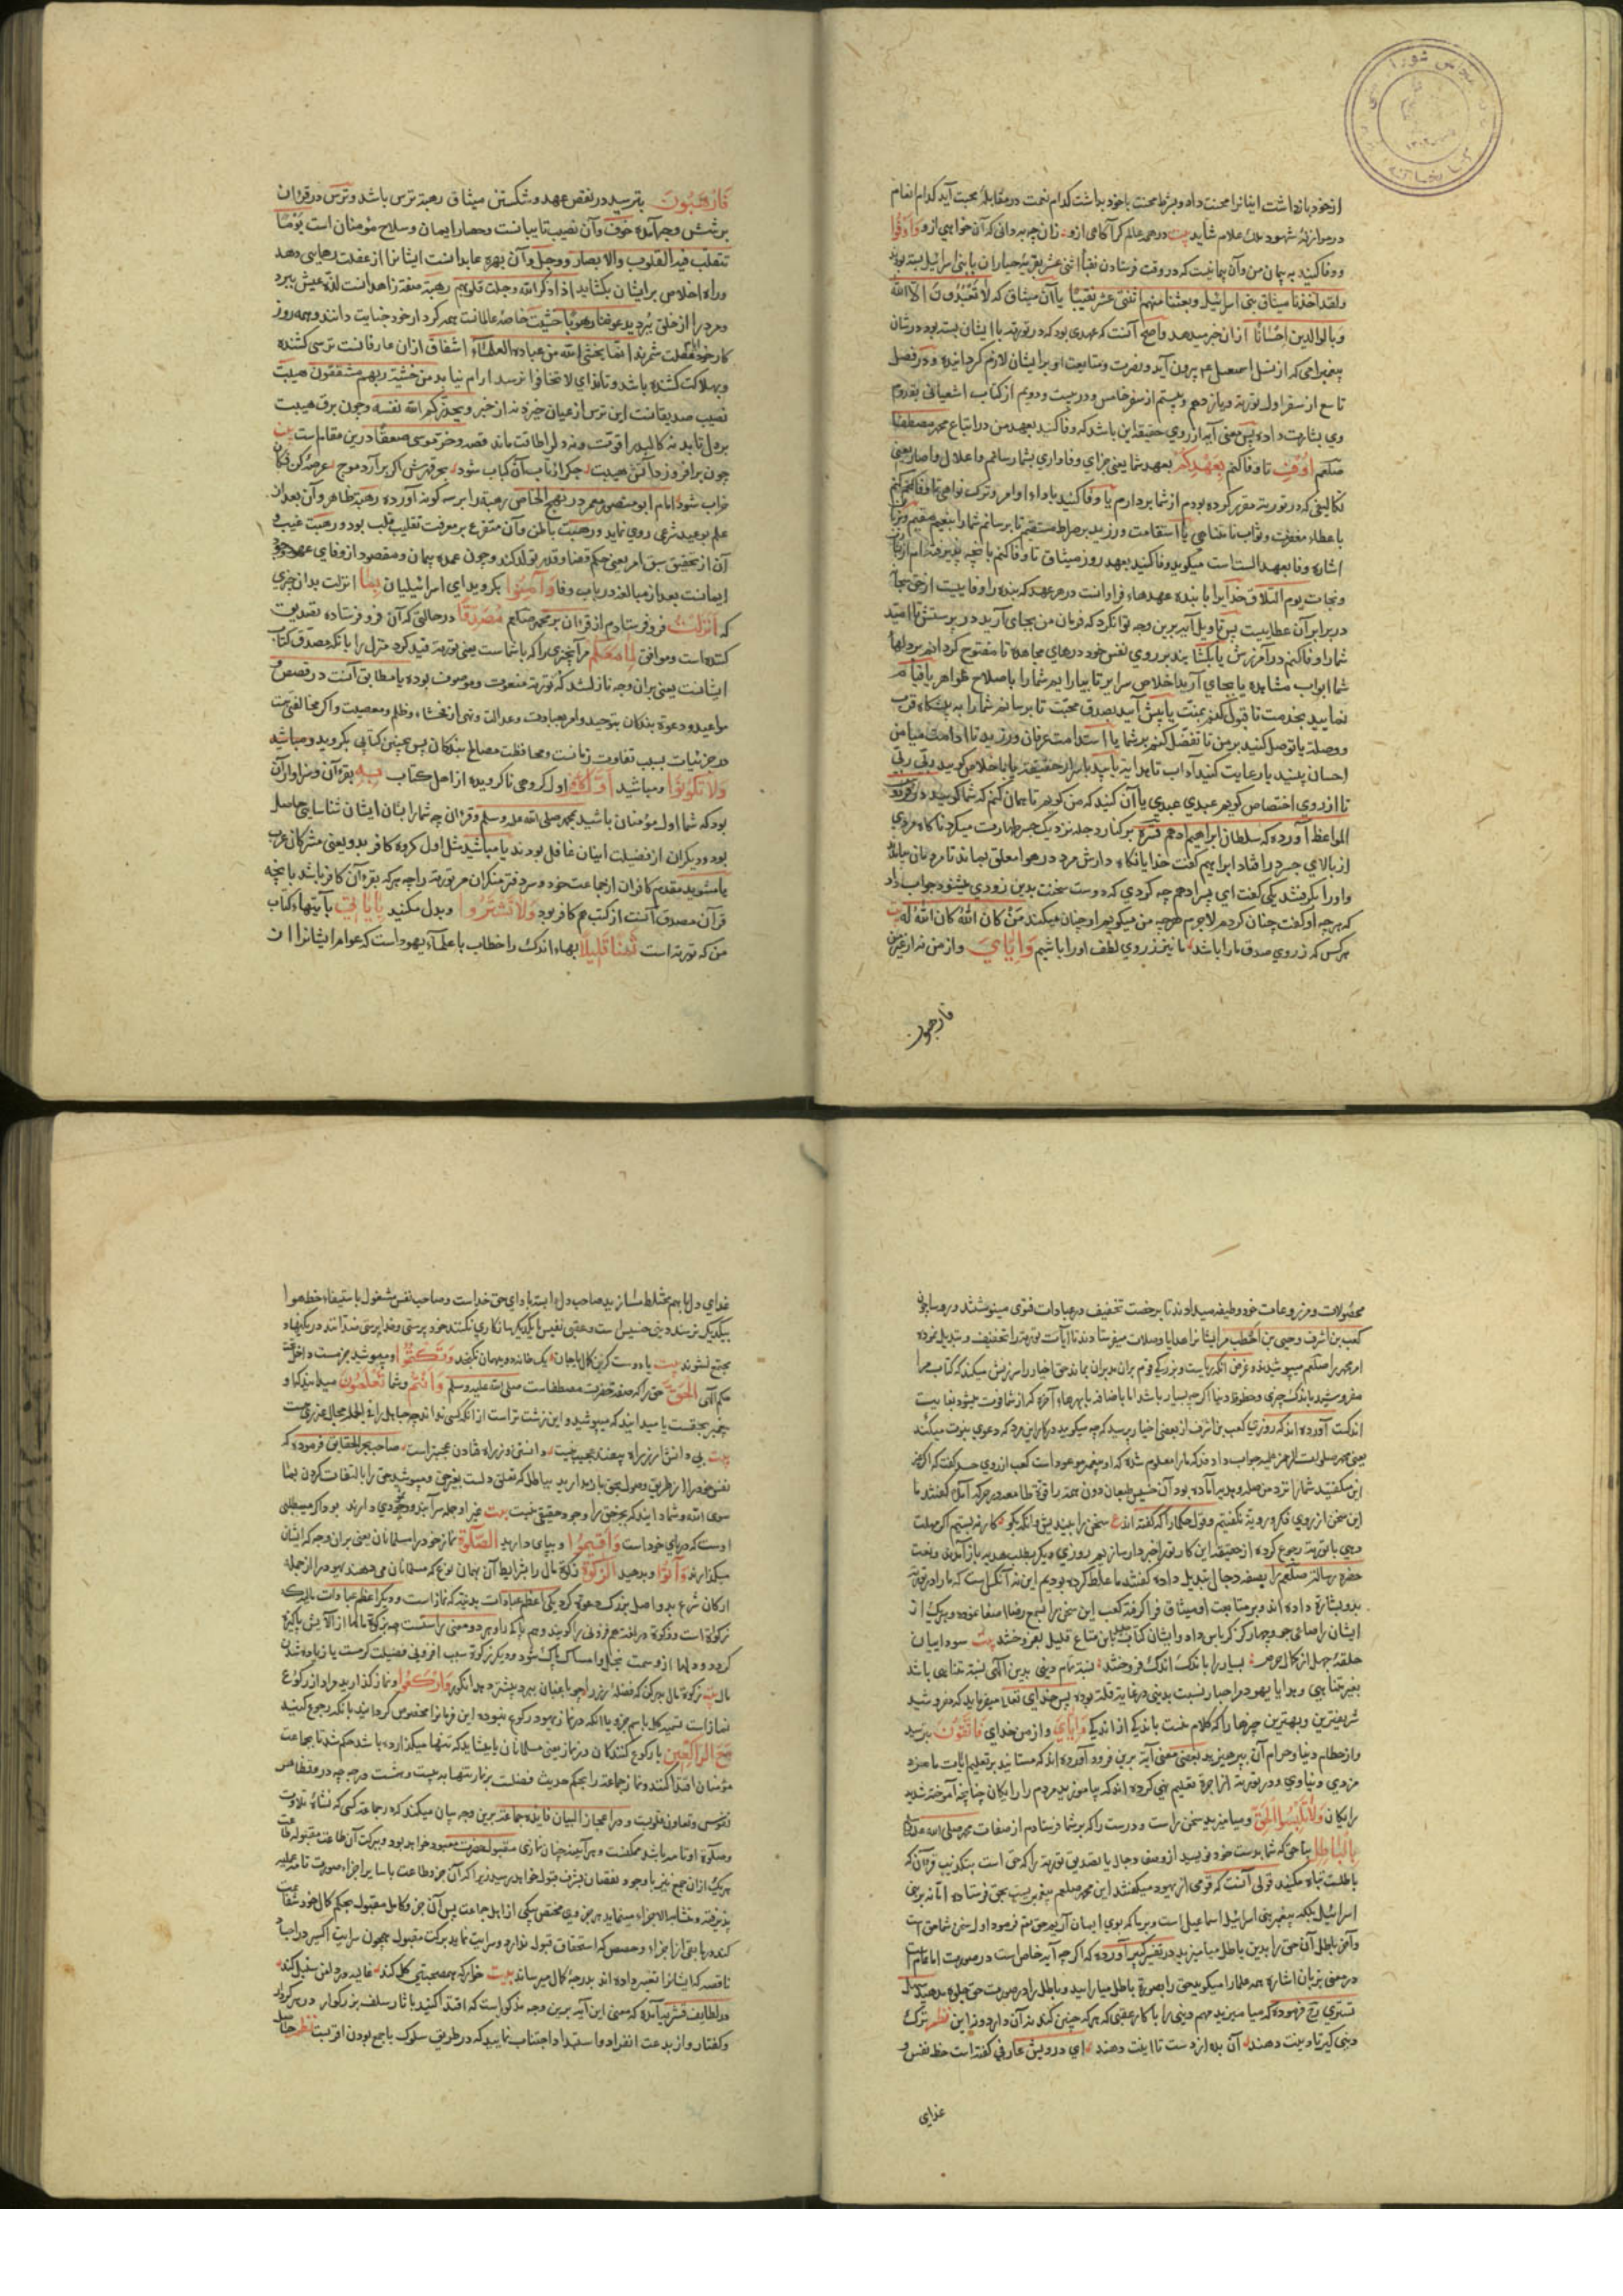 از خود باز داشت اینانرا محنت داد و بشرط محنت با خود بداشت کدام نعمت در مقابلهٔ محبت آید کدام انعام
در موازنهٔ شهود ملک علام شاید بیت در همه عالم کرا کاهی ازو زان چه به دانی که آن خواهی ازو وَاَوْفُوا
و وفا کنید به پیمان من و آن پیمانیست که در وقت فرستادن نقبا اثنی عشر بقریهٔ جباران با بنی اسرائیل بسته بود
ولقد اخذنا میثاق بنی اسرائیل وبعثنا منهم اثنی عشر نقیبًا یا آن میثاق که لا تَعْبُدُونَ اِلّا الله
وبالوالدین اِحْسَانًا از ان خبر میدهد واصح آنست که عهدی بود که در توریة با ایشان بسته بود در شان
پیغمبرامی که از نسل اسمعیل ع بیرون آید و نصرت و متابعت او بر ایشان لازم کردانیده و در فصل
تاسع از سفر اول توریة و یازدهم و بیستم از سفر خامس و در بیست و دویم از کتاب اشعیا
وی بشارت داده پس معنی آیه از روی حقیقه این باشد که وفا کنید بعهد من در اتباع محمد مصطفا
صلعم اُوفِ تا وفا کنم بِعَهْدِكُمْ بعهد شما یعنی جزای وفاداری بشما رسانم و اغلال و اصار یعنی
تکالیفی که در توریة مقرر کرده بودم از شما بردارم یا وفا کنید باداء اوامر و ترک نواهی تا وفا کنم
باعطاء مغفرت و ثواب نامتناهی یا استقامت ورزید بر صراط مستقیم تا برسانم شما را بنعیم مقیم
اشاره وفا بعهد الست است میکوید وفا کنید بعهد روز میثاق تا وفا کنم بانچه پذیرفته ام
ونجات یوم التلاق خدایرا با بنده عهدهاء فراوانست در هر عهد که بنده را وفاییست از حق
در برابر آن عطاییست پس تاویل آیه برین وجه توان کرد که فرمان من بجای آرید در پرستش تا امید
شما را وفا کنم در آمرزش یا بکشایید بر روی نفس خود درهای مجاهده تا مفتوح کردانم بر دلها
شما ابواب مشاهده یا بجای آرید اخلاص سرایر تا بیارایم شما را باصلاح ظواهر یا قیام
نمایید بخدمت تا قبول کنم بمنت یا پیش آیید بصدق محبت تا برسانم شما را به پیشکاه قرب
و وصلة یا توصل کنید بر من تا تفضل کنم بر شما یا استدامت عرفان ورزید تا
احسان بینید یا رعایت کنید آداب
تا از روی اختصاص کویم عبدی عبدی یا آن کنید که من کویم تا همان کنم که شما کویید
المواعظ آورده که سلطان ابراهیم ادهم قدس سره بر کنار دجله نزدیک جسر طهارت میکرد ناکاه مردی
از بالای جسر در افتاد ابراهیم کفت خدایا نکاه دارش مرد در هوا معلق بماند تا مردمان
و او را بکرفتند یکی کفت ای پسر ادهم چه کردی که دوست سخنت بدین زودی میشنود جواب داد
که هر چه او کفت چنان کردم لاجرم هر چه من میکویم او چنان میکند مَنْ کانَ اللهِ کان اللهُ لَه بیت
هر کس که ز روی صدق ما را باشد ما نیز ز روی لطف او را باشیم وَاِیَّایَ و از من نه از غیر من
فارهبون
فَارْهَبُونَ بترسید در نقض عهد و شکستن میثاق رهبة ترس باشد و ترس در قرءان
بر شش وجه آمده خوف و آن نصیب تایبانست و حصار ایمان و سلاح مؤمنان است یَوْمًا
تتقلب فیه القلوب والابصار و وجل و آن بهرهٔ عابدانست ایشانرا از غفلت رهایی دهد
و راه اخلاص بر ایشان بکشاید اذا ذکر الله وجلت قلوبهم رهبة صفة زاهدانست لذة عیش ببرد
و مرد را از خلق بُبرد یدعوننا رغبًا ورهبًا خشیت خاصهٔ عالمانست همه کردار خود جنایت دانند و همه روز
کار خود غفلت شمرند انما یخشی الله من عباده العلماء اشفاق از ان عارفانست ترسی کشنده
و بهلاکت کشنده باشد و تا ندای لا تخافوا نرسد ارام نیابد من خشیة ربهم مشفقون هیبت
نصیب صدیقانست این ترس از عیان خیزد نه از خبر ویحذرکم الله نفسه و چون برق هیبت
بر دل تابد نه کالبد را قوت و نه دل را طاقت ماند قصه وخر موسی صعقًا درین مقام است بیت
چون برافروزد آتش هیبت جکر از تاب آن کباب شود بحر قهرش اکر برآرد موج عرصهٔ کن فکان
خراب شود امام ابو منصور معمر در نهج الخاص رهبة را بر سه کونه آورده رهبة ظاهر و آن بعد از
علم بوعید شرعی روی نماید و رهبت باطن و آن متفرع بر معرفت تقلیب قلب بود و رهبت غیب و
آن از تحقیق سبق امر یعنی حکم قضا و قدر تولد کند و چون عمده پیمان و مقصود از وفای عهد خود
ایمانست بعد از مبالغه در باب وفا وَآمِنُوا بکروید ای اسرائیلیان بِمَا انزلت بدان چیزی
که اَنْزَلْتُ فرو فرستادم از قرءان بر محمد صلعم مُصَدِّقًا در حالتی که آن فرو فرستاده تصدیق
کننده است و موافق لِمَا مَعَكُمْ مر آنچیزی را که با شماست یعنی توریة قید کرد منزل را بانکه مصدق کتاب
ایشانست یعنی بران وجه نازل شد که توریة منعوت و موصوف بوده یا مطابق آنست در قصص و
مواعید و دعوة بندکان بتوحید و امر بعبادت و عدالت و نهی از فحشاء و ظلم و معصیت و اکر مخالفتی هست
در جزئیات بسبب تفاوت زمانست و محافظت مصالح بندکان پس بچنین کتابی بکروید و مباشید
وَلَا تَكُونُوا و مباشید اَوَّلَ كَافِرٍ اول کروهی ناکرویده از اهل کتاب بِهِ بقرءآن و سزاوار آن
بود که شما اول مؤمنان باشید بمحمد صلی الله علیه وسلم و قرءان چه شما را بشان ایشان شناسایی حاصل
بود و دیکران از فضیلت اینان غافل بودند یا مباشید مثل اول کروه کافر بدو یعنی مشرکان عرب
یا مشوید مقدم کافران از جماعت خود و سر دفتر منکران مر توریة را چه هر که بقرءآن کافر باشد بانچه
قرآن مصدق آنست از کتب هم کافر بود وَلَا تَشْتَرُوا و بدل مکنید بِآیَاتِی بآیتهاء کتاب
من که توریة است ثَمَنًا قَلِیلًا بهاء اندک را خطاب با علماء یهود است که عوام ایشانرا از
محصولات و مزروعات خود وظیفه میدادند تا برخصت تخفیف در عبادات فتوی مینوشتند
کعب بن اشرف وحیی بن اخطب مر ایشانرا هدایا و صلات میفرستادند تا آیات توریة را تحفیف و تبدیل نموده
امر محمد را صلعم میپوشیدند و غرض انکه ریاست و بزرکی قوم بران مدبران بماند حق احبار را سرزنش میکند که کتاب مرا
مفروشید باندک چیزی و حظوظ دنیا اکر چه بسیار باشد اما باضافه با بهرهاء آخرة که از شما فوت میشود بغایت
اندکست آورده اند که روزی کعب بن اشرف از بعضی احبار پرسید که چه میکویید در کار این مرد که دعوی نبوت میکند
یعنی محمد صلوات الرحمن علیه جواب دادند که ما را معلوم شده که او پیغمبر موعود است کعب از روی حسد کفت که اکر غیر
این میکفتید شما را نزد من صله و هدیه آماده بود آن خسیس طبعان دون همة
این سخن از روی فکر و رویة نکفتیم و قول حکما را که کفته اند ع سخن را بیندیش وانکه بکو کار نبستیم اکر مهلت
دهی بتوریة رجوع کرده از حقیقة این کار ترا خبردار سازیم روزی دیکر بطلب هدیه باز آمدند و نعت
حضرة رسالة صلعم را بصفه دجال تبدیل داده کفتند ما غلط کرده بودیم این نه آنکس است که ما را در توریة
بدو بشارة داده اند و بر متابعت او میثاق فرا کرفته کعب این سخن را بسمع رضا اصغا نموده و هر یک از
ایشان را صاعی جو و چهار کز کرباس داد و ایشان کتاب بدین متاع قلیل بفروختند بیت سوداییان
حلقهٔ جهل از کمال حرص بسیار را باندک اندک فروختند نسبة تمام دینی بدین اکهی نسبة متناهی باشد
بغیر متناهی و هدایا یهود مر احبار نسبت بدینی در غایة قلة بوده پس خدای تعالا میفرماید که مفروشید
شریفترین و بهترین چیزها را که کلام منست باندیکی از اندیکی وَاِیَّایَ و از من خدای فَاتَّقُونِ بترسید
و از حطام دنیا و حرام آن بپرهیزید بعضی معنی آیه برین فرود آورده اند که مستانید بر تعلیم ایات ما مزد
مزدی دنیاوی و در توریة از اجرة تعلیم نهی کرده اند که بیاموزید مردم را رایکان چنانچه آموخته شدید
رایکان وَلَا تَلْبِسُوا الْحَقَّ و میامیزید سخن راست و درست را که بر شما فرستادم از صفات محمد صلی الله علیه وسلم
بِالْبَاطِلِ بناحق که شما بدست خود نوشتید از وصف دجال یا تصدیق توریة را که حق است بتکذیب قرءان که
باطلست تباه مکنید قولی آنست که قومی از یهود میکفتند این محمد صلعم پیغمبریست بحق فرستاده اما نه بر بنی
اسرائیل بلکه پیغمبر بنی اسماعیل است و بر ما که بوی ایمان آریم حق تع فرمود اول سخن شما حق است
و آخر باطل آن حق را بدین باطل میامیزید در تفسیر کبیر آورده که اکر چه آیه خاص است در صورت اما عام است
در معنی بزبان اشاره همه علما را میکوید حق را بصورة باطل میارایید و باطل را در صورت حق جلوه مدهید سهل
تستری رح فرموده که میامیزید مهم دینی را با کار عقبی که هر که چنین کند نه آن دارد و نه این نظم ترک
دینی کیر تا دینت دهند آن بده از دست تا اینت دهند ای درویش عارفی کفته است حظ نفس و
غذای
غذای دل با هم مختلط مسازید صاحب دل ابتدا بادای حق خداست و صاحب نفس مشغول باستیفاء حظ هوا
بیکدیکر نرسند دینی خسیس است و عقبی نفیس با یکدیکر سازکاری نکنند خود پرستی و خداپرستی ضدانند در یکنهاد
مجتمع نشوند بیت یا دوست کزین کمال یا جان یک خانه دو میهمان نکنجد وَتَكْتُمُوا و مپوشید
حکم الهی الْحَقَّ حق را که صفة حضرت مصطفاست صلی الله علیه وسلم وَاَنْتُمْ و شما تَعْلَمُونَ میدانید که او
پیغمبر بحقست یا میدانید که میپوشید و این زشت تر است از آنکه کسی نداند چه جاهل را فی الجمله مجال عذری هست
بیت بی دانش ار ز راه بیفتد عجیب نیست دانستن و ز راه فتادن عجبتر است صاحب بحر الحقایق فرموده که
نفس خود را از طریق وصول بحق باز مدارید بباطل که تعلق دلست بغیر حق و مپوشید حق را بالتفات کردن بما
سوی الله و شما دانید که بجز حق را وجود حقیقی نیست بیت غیر او جمله سرابند و وجودی دارند
اوست که دریای خود است وَاَقِیمُوا و بپای دارید الصَّلٰوةَ نماز خود را مسلمانان یعنی بران وجه که ایشان
میکذارند وَآتُوا و بدهید الزَّكٰوةَ زکوة مال را بشرایط آن بهمان نوع که مسلمانان می دهند یهود را از جمله
ارکان شرع بدو اصل بزرک دعوة کرد یکی اعظم عبادات بدنیه که نماز است و دیکر اعظم عبادات مالیه که
زکوة است و زکوة در لغة هم فزونی را کویند و هم پاکی را و هر دو معنی راستست چه بزکوة مالها از آلایش پاکیزه
کردد و دلها از وسمت بخل و امساک پاک شود و دیکر زکوة سبب افزونی فضیلت کرمست یا زیاده شدن
مال بیت زکوة مال بدر کن که فضلهٔ رز را چو باغبان ببرد بیشتر دهد انکور وَارْكَعُوا و نماز کذارید مراد از رکوع
نماز است تسمیه کل باسم جزو یا انکه در نماز یهود رکوع نبوده این فرمانرا مخصوص کردانید بانکه رجوع کنید
مَعَ الرَّاكِعِینَ با رکوع کنندکان در نماز یعنی مسلمانان یا بشاید که تنها میکزارده باشد حکم شد تا بجماعت
مؤمنان اقتدا کنند و نماز جماعة را بحکم حدیث فضلست بر نماز تنها به بیست و هشت درجه چه درو تظاهر
نفوس و تعاون قلوبست و در اعجاز البیان فایدهٔ جماعة برین وجه بیان میکند که در جماعة کسی که نشاة تلاوت
و صلوة او تامه باشد ممکنست و هر آینه چنان نمازی مقبول حضرت معبود خواهد بود و ببرکت آن طاعت مقبوله طاعت
هر یک از ان جمع نیز با وجود نقصان بشرف قبول خواهد رسید زیرا که آن جزو طاعت با سایر اجزاء صورت تامه جملیه
پذیرفته و متشابه الاجزاء مینماید هر جزوی مختص بیکی از اهل جماعت پس آن جزو کامل مقبول بحکم کمال خود شفاعت
کند در باقی از اجزاء و حصص که استحقاق قبول ندارد و سرایت نماید برکت مقبول همچون سرایت اکسیر در اجساد
ناقصه که ایشانرا تغییر داده اند بدرجهٔ کمال میرساند بیت خواری که همصحبتی کل کند غالیه در دامن سنبل کند
در لطایف قشریه آمده که معنی این آیه برین وجه مذکور است که اقتدا کنید باثار سلف بزرکوار در هر کردار
و کفتار و از بدعت انفراد و استبداد اجتناب نمایید که در طریق سلوک باجمع بودن اقربست نظم